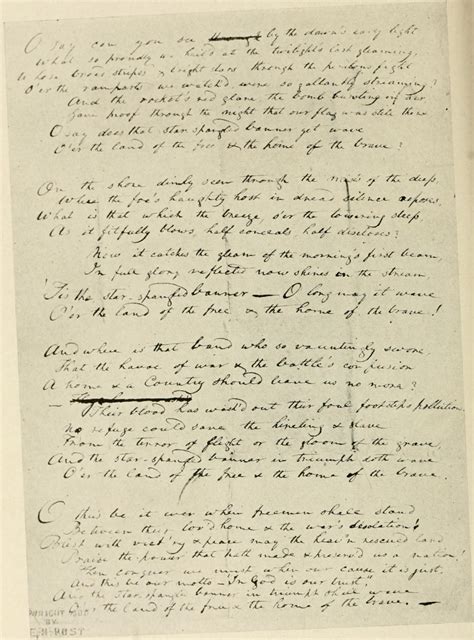 O say can you see through by the dawn's early light
What so proudly we hail'd at the twilight's last gleaming,
Whose broad stripes & bright stars through the perilous fight
O'er the ramparts we watch'd, were so gallantly streaming?
And the rocket's red glare, the bomb bursting in air,
Gave proof through the night that our flag was still there
O say does that star-spangled banner yet wave
O'er the land of the free & the home of the brave?
On the shore dimly seen through the mists of the deep,
Where the foe's haughty host in dread silence reposes,
What is that which the breeze, o'er the towering steep,
As it fitfully blows, half conceals, half discloses?
Now it catches the gleam of the morning's first beam,
In full glory reflected now shines in the stream,
'Tis the star-spangled banner — O long may it wave
O'er the land of the free & the home of the brave!
And where is that band who so vauntingly swore,
That the havoc of war & the battle's confusion
A home & a Country should leave us no more?
Their blood has wash'd out their foul footsteps pollution.
No refuge could save the hireling & slave
From the terror of flight or the gloom of the grave,
And the star-spangled banner in triumph doth wave
O'er the land of the free & the home of the brave.
O thus be it ever when freemen shall stand
Between their lov'd home & the war's desolation!
Blest with vict'ry & peace may the heav'n rescued land
Praise the power that hath made & preserv'd us a nation!
Then conquer we must, when our cause it is just,
And this be our motto — "In God is our trust,"
And the star-spangled banner in triumph shall wave
O'er the land of the free & the home of the brave. —
BY
POST